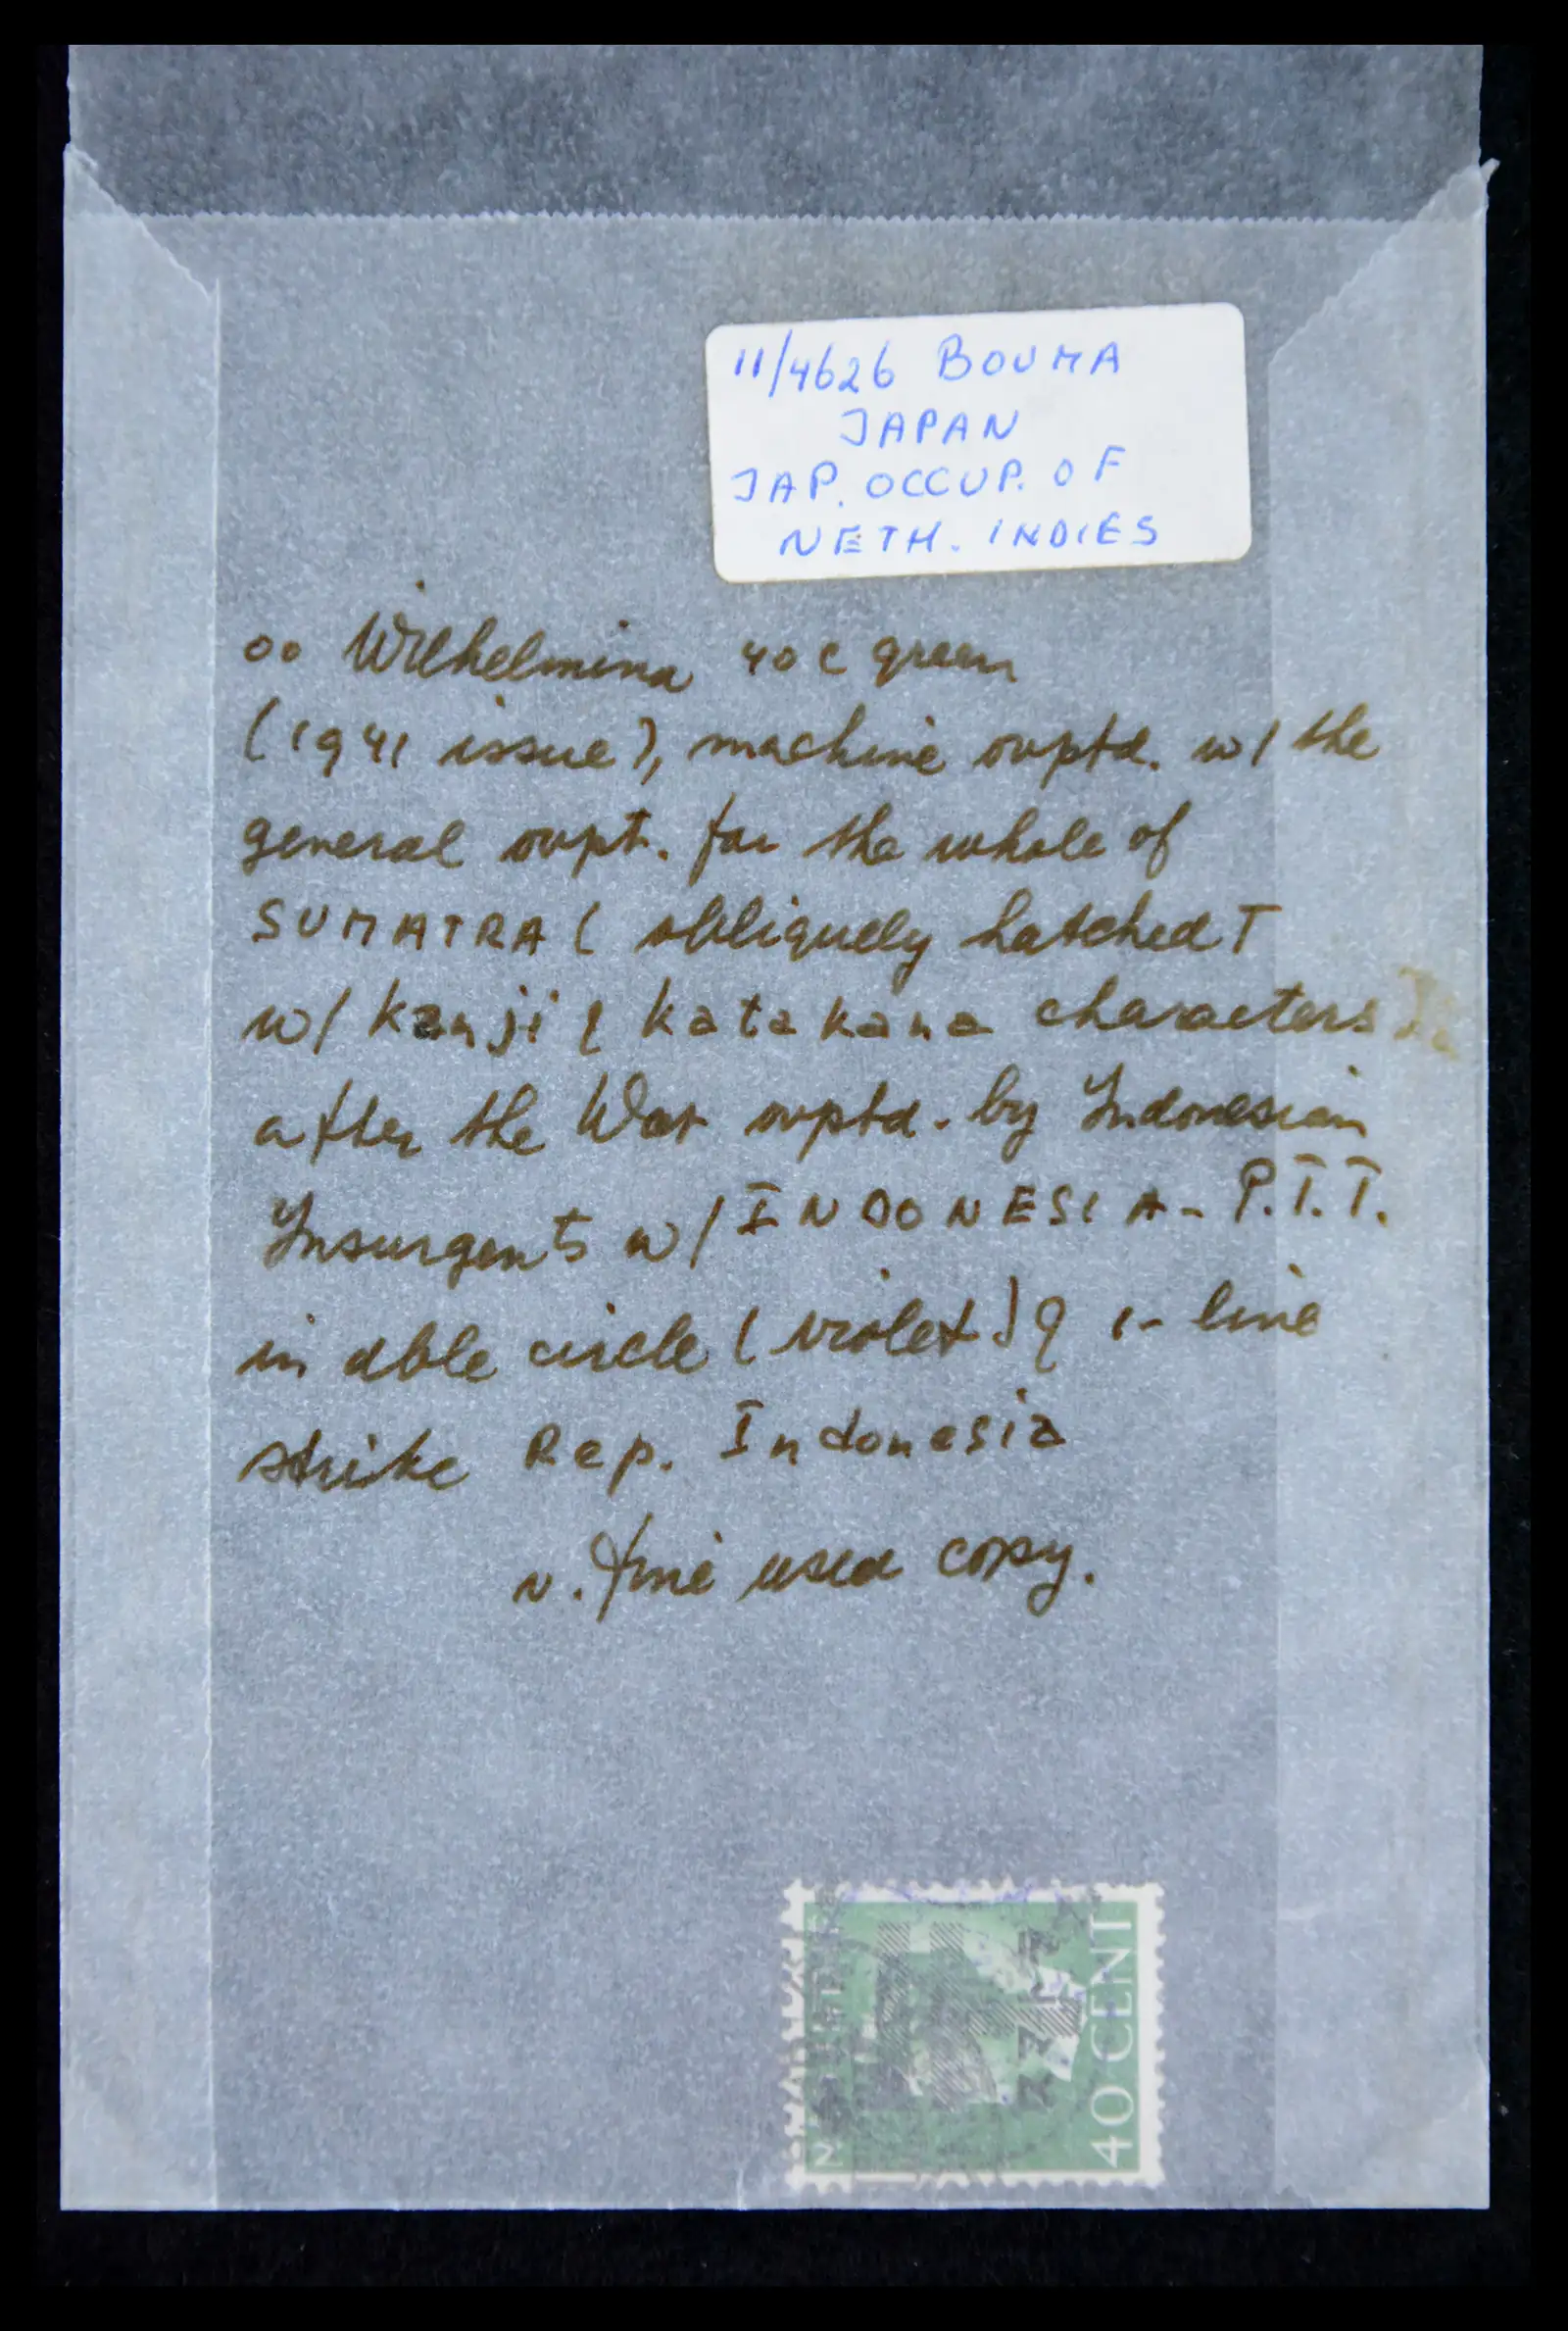 11/4626 BOUMA
JAPAN
JAP. OCCUP. OF
NETH. INDIES
oo Wilhelmina 40 c green
(1941 issue), machine ovptd. w/ the
general ovpt. for the whole of
SUMATRA ( obliquely hatched T
w/ kanji & katakana characters
after the War ovptd. by Indonesian
Insurgents w/ INDONESIA - P.T.T.
in dble circle (violet) & 1-line
strike Rep. Indonesia
v. fine used copy.
40 CENT